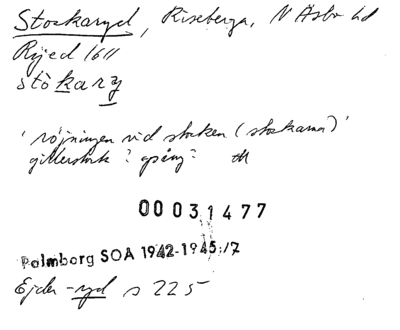 Stockaryd, Riseberga, N Åsbo hd
Ryed 1611
stòkarʒ
'röjningen vid stocken (stockarna)'
gillerstock? spång?
00031477
Palmborg SOA 1942-1945:/7
Ejder -ryd s 225